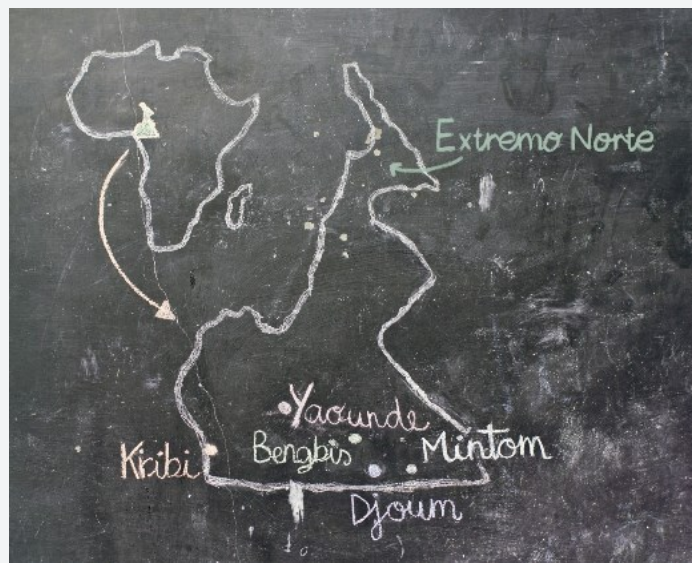 Extremo Norte
Yaounde
Bengbis
Mintom
Kribi
Djoum